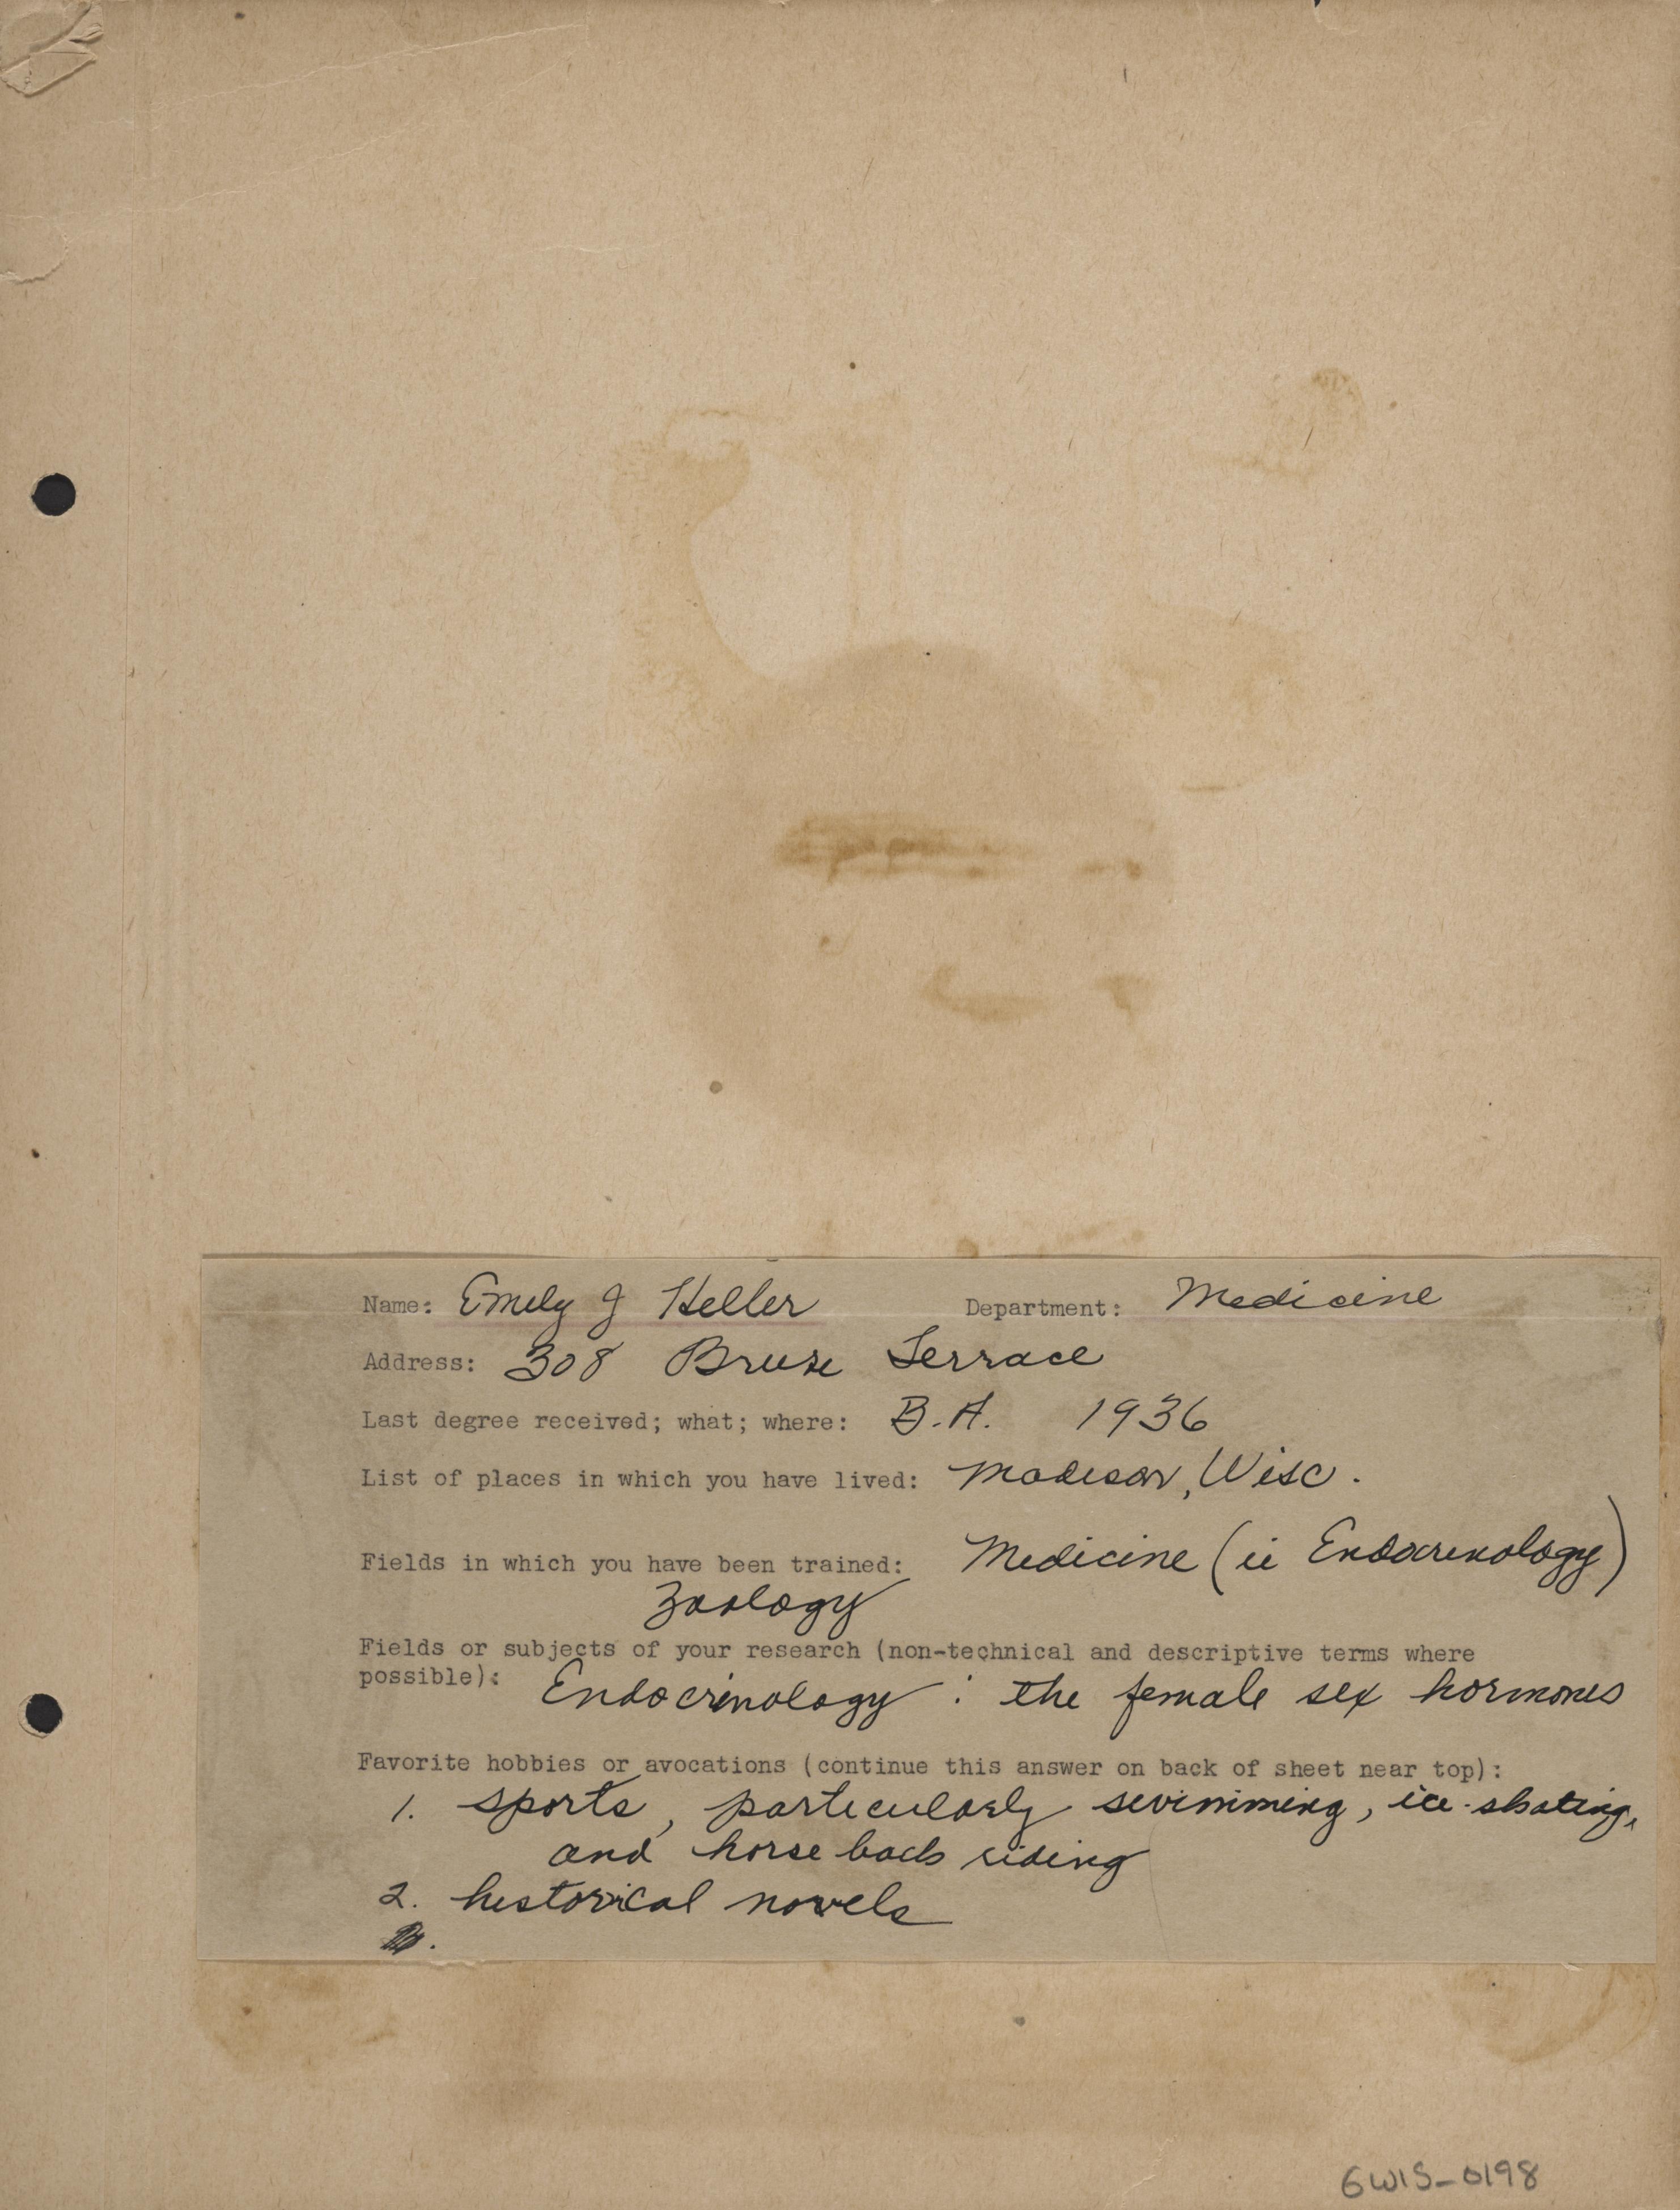 Name: Emily J Heller Department: Medicine
Address: 308 Bruse Terrace
Last degree received; what; where: B.A. 1936
List of places in which you have lived: Madison, Wisc.
Fields in which you have been trained: Medicine (ie Endocrinology)
Zoology
Fields or subjects of your research (non-technical and descriptive terms where
possible): Endocrinology: the female sex hormones
Favorite hobbies or avocations (continue this answer on back of sheet near top):
1. sports, particularly swimming, ice-skating,
and horse back riding
2. historical novels
6WIS-0198